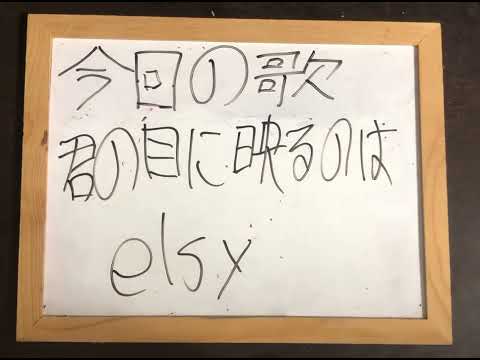 今回の歌
君の目に映るのは
elsy